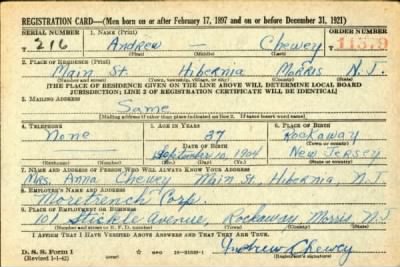 REGISTRATION CARD—(Men born on or after February 17, 1897 and on or before December 31, 1921)
SERIAL NUMBER 1. NAME (Print) ORDER NUMBER
T 216 Andrew — Chewey 11579
(First) (Middle) (Last)
2. PLACE OF RESIDENCE (Print)
Main St. Hibernia Morris N.J.
(Number and street) (Town, township, village, or city) (County) (State)
[THE PLACE OF RESIDENCE GIVEN ON THE LINE ABOVE WILL DETERMINE LOCAL BOARD
JURISDICTION; LINE 2 OF REGISTRATION CERTIFICATE WILL BE IDENTICAL]
3. MAILING ADDRESS
Same
[Mailing address if other than place indicated on line 2. If same insert word same]
4. TELEPHONE 5. AGE IN YEARS 6. PLACE OF BIRTH
None 37 Rockaway
DATE OF BIRTH (Town or county)
September 10, 1904 New Jersey
(Exchange) (Number) (Mo.) (Day) (Yr.) (State or country)
7. NAME AND ADDRESS OF PERSON WHO WILL ALWAYS KNOW YOUR ADDRESS
Mrs. Anna Chewey Main St., Hibernia, N.J.
8. EMPLOYER'S NAME AND ADDRESS
Moretrench Corp.
9. PLACE OF EMPLOYMENT OR BUSINESS
101 Stickle Avenue, Rockaway Morris, N.J.
(Number and street or R. F. D. number) (Town) (County) (State)
I AFFIRM THAT I HAVE VERIFIED ABOVE ANSWERS AND THAT THEY ARE TRUE.
D. S. S. Form 1
(Revised 1-1-42) (over) Andrew Chewey
(Registrant's signature)